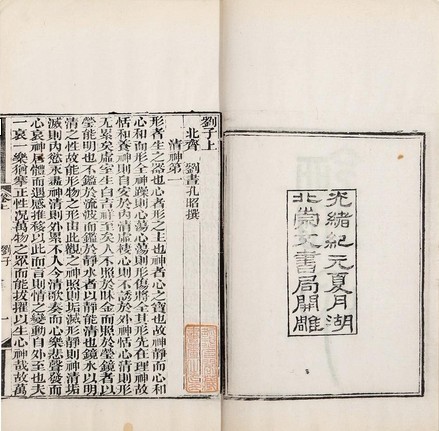 光緒紀元夏月湖
北崇文書局開雕
劉子上
北齊 劉晝孔昭撰
清神第一
形者生之器也心者形之主也神者心之寶也故神靜而心和
心和而形全神躁則心蕩心蕩則形傷將全其形先在理神故
恬和養神則自安於內清虛棲心則不誘於外神恬心清則形
無累矣虛室生白吉祥至矣人不照於昧金而照於瑩鏡者以
瑩能明也不鑑於流波而鑑於靜水者以靜能清也鏡水以明
清之性故能形物之形由此觀之神照則垢滅形靜則神清垢
滅則內慾永盡神清則外累不入今清歌奏而心樂悲聲發而
心哀神居體而遇感推移以此而言則情之變動自外至也夫
一哀一樂猶搴正性況萬物之眾而能拔擢以生心神哉故萬
卷上
劉子
一